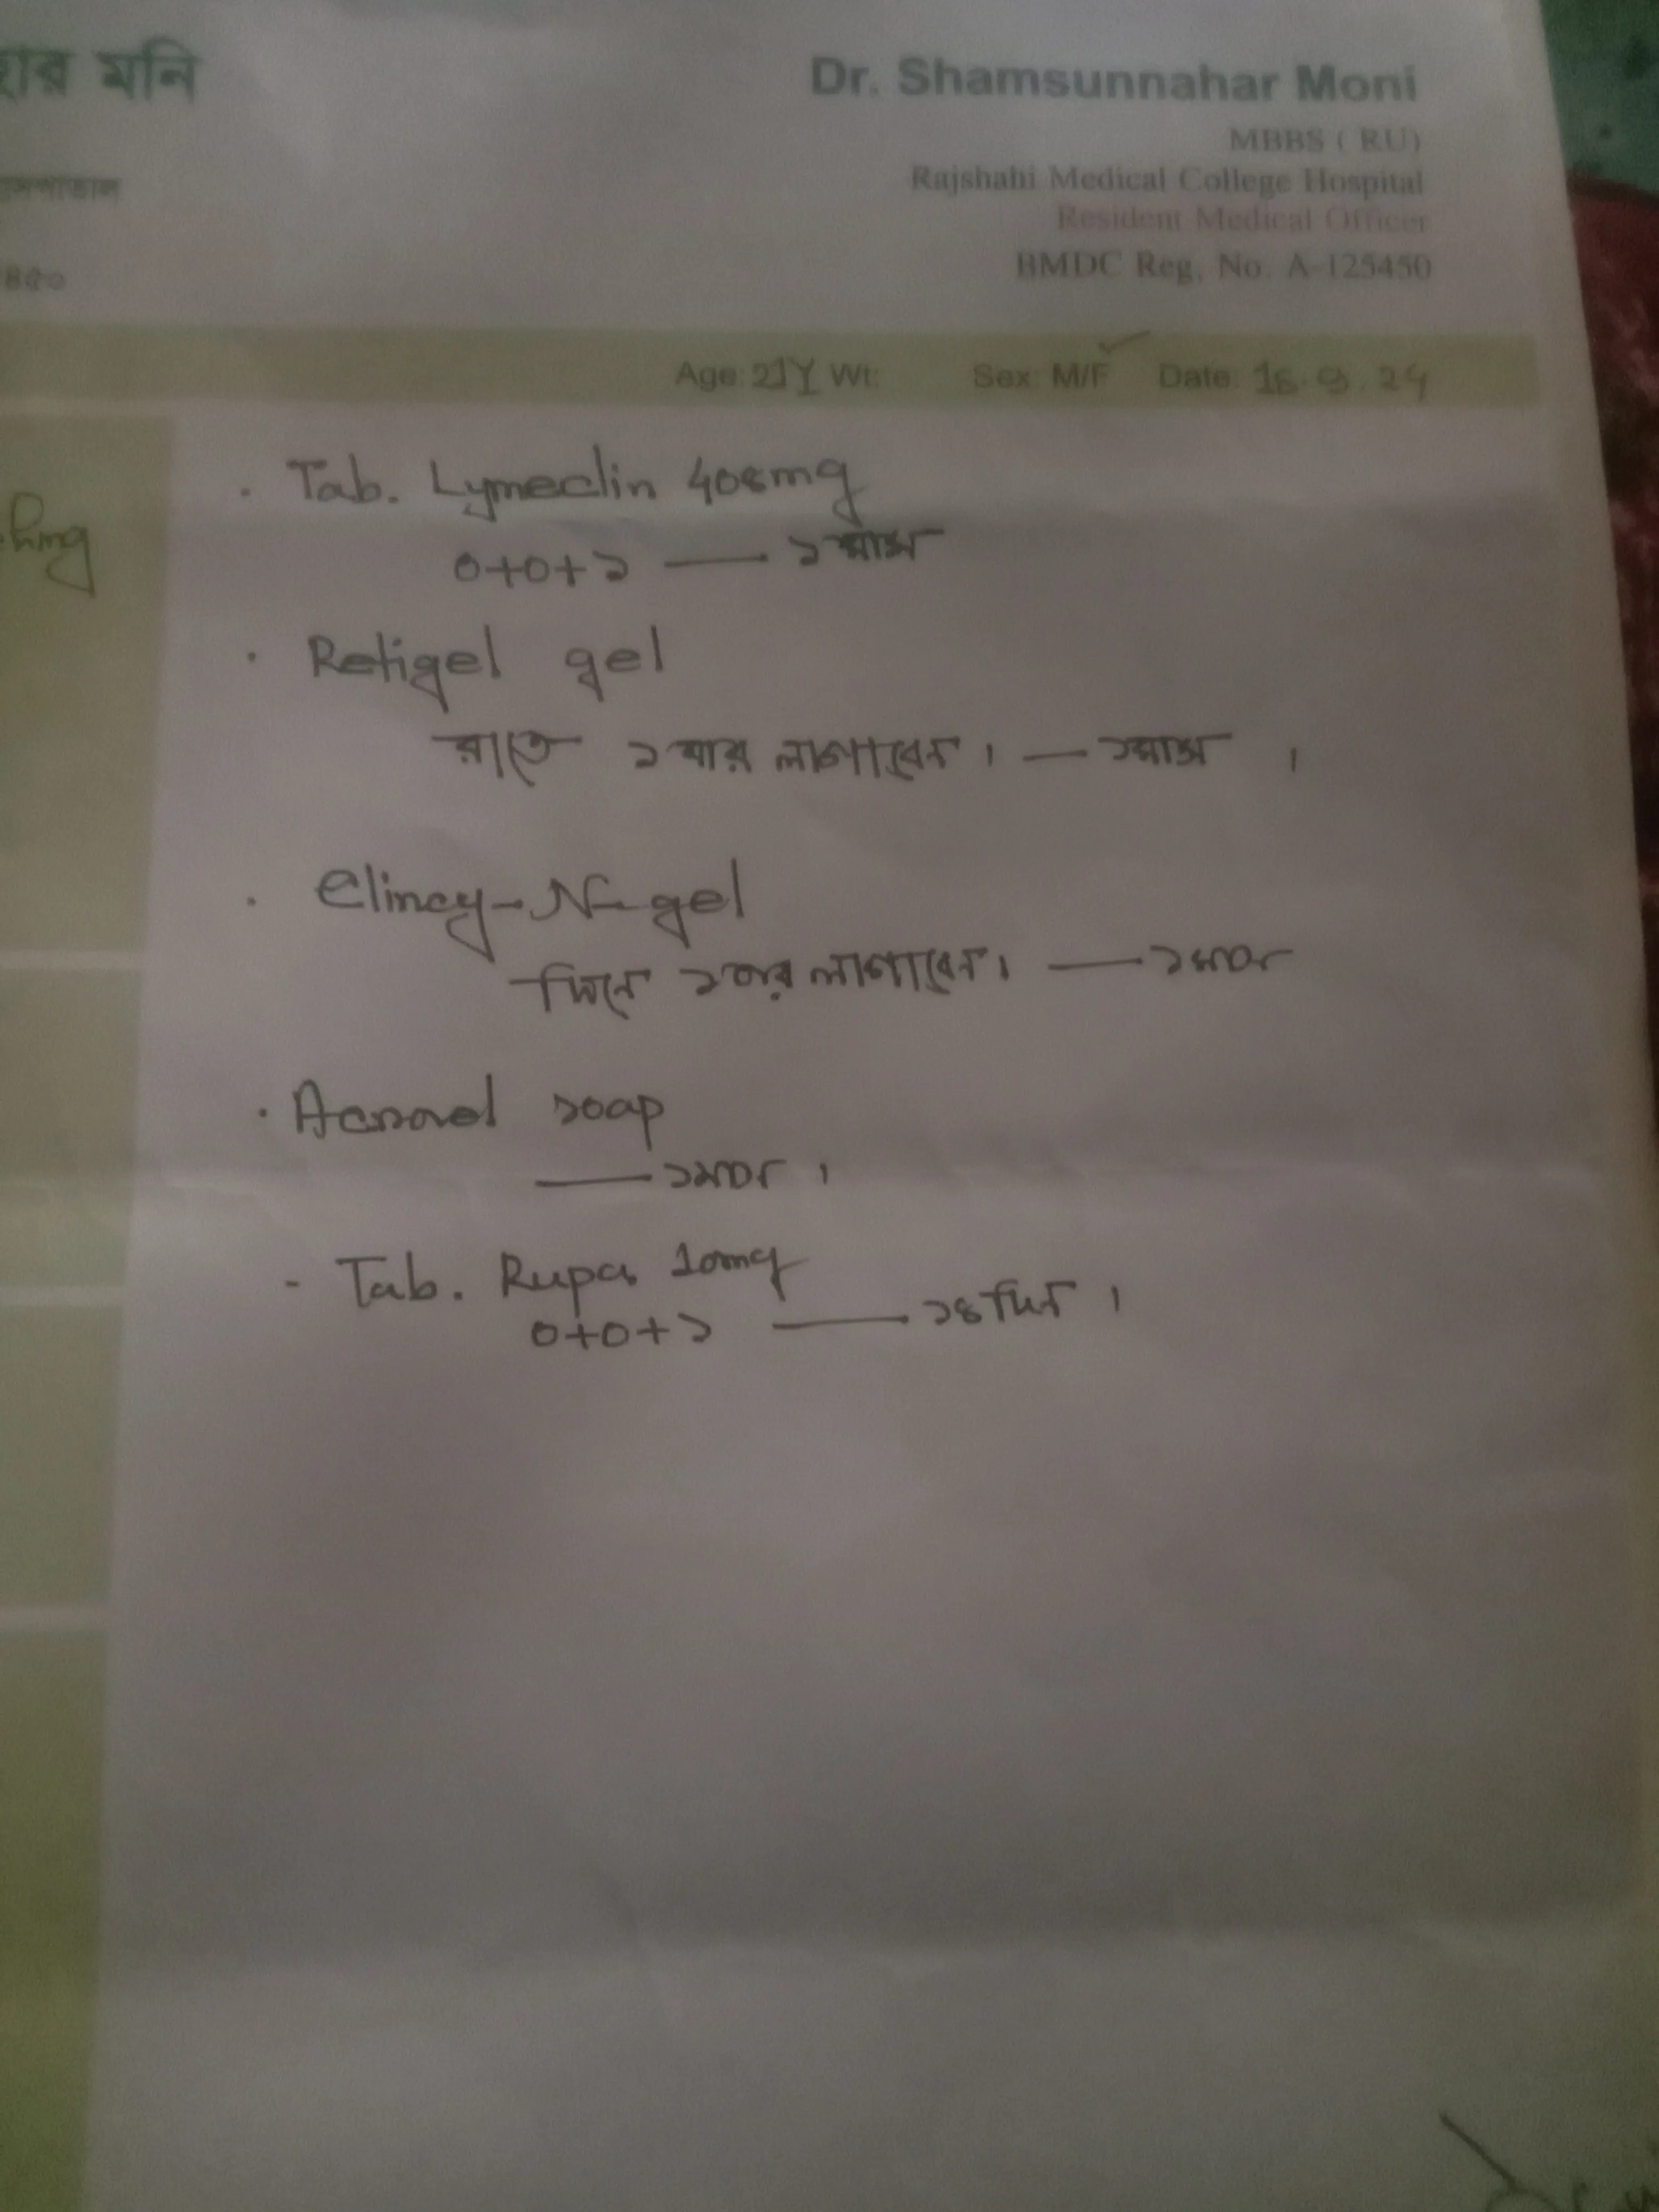 হার মনি
Dr. Shamsunnahar Moni
MBBS ( RU)
Rajshahi Medical College Hospital
Resident Medical Officer
BMDC Reg. No. A-125450
৪৫০
Age: 21Y Wt: Sex: M/F ✓ Date: 18.9.24
. Tab. Lymeclin 408mg
0+0+১ — ১মাস
. Retigel gel
রাতে ১ বার লাগাবেন। — ১মাস ।
. Clincy-N-gel
দিনে ১বার লাগাবেন। — ১মাস
. Acnovel soap
— ১মাস ।
- Tab. Rupa 10mg
0+0+১ — ১৪ দিন ।